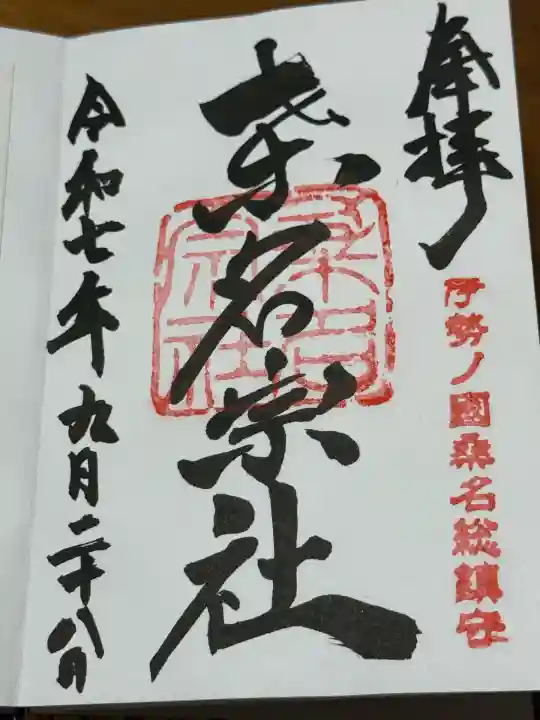 奉拝
伊勢ノ國桑名総鎮守
桒名宗社
桑名宗社
令和七年九月二十八日